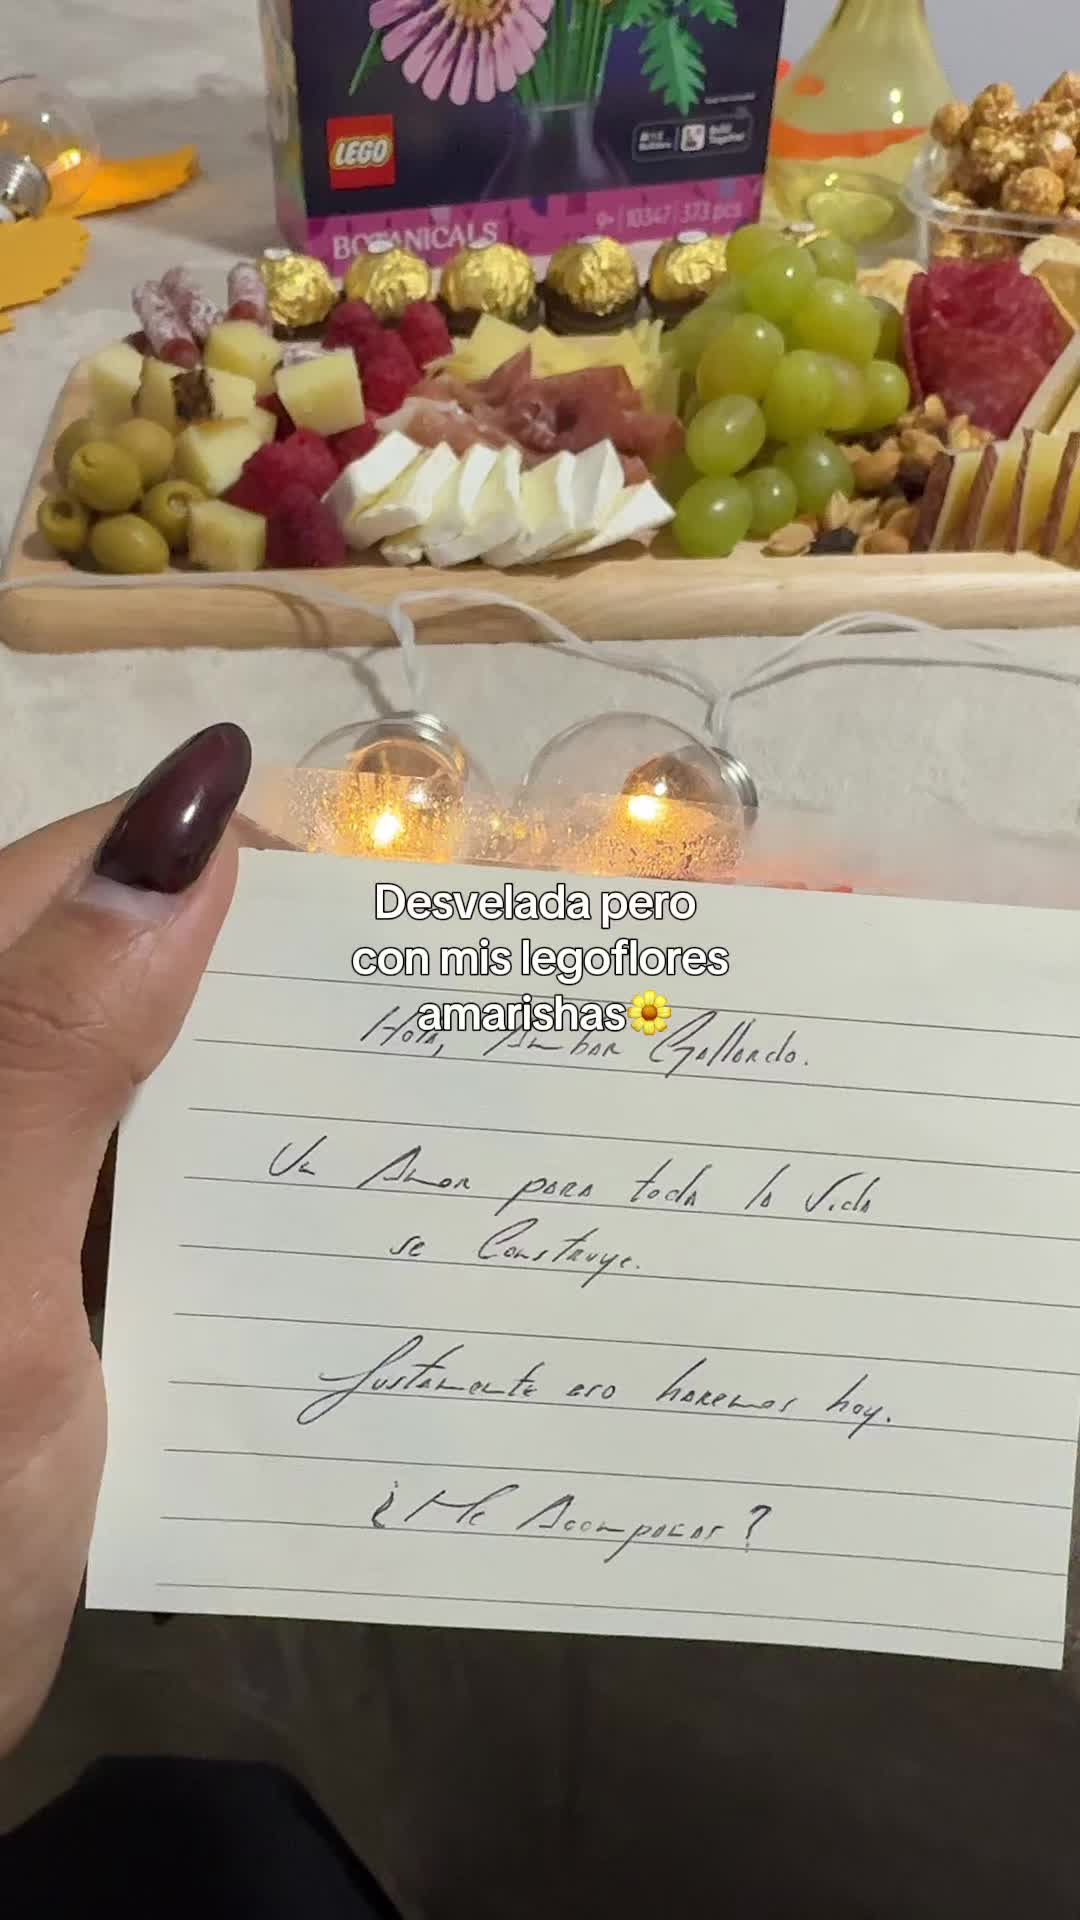 LEGO
BOTANICALS
9+ | 10347 | 373 pcs
Desvelada pero
con mis legoflores
amarishas🌼
Hola, Ambar Gallardo.
Un Amor para toda la Vida
se Construye.
Justamente eso haremos hoy.
¿Me Acompañas?